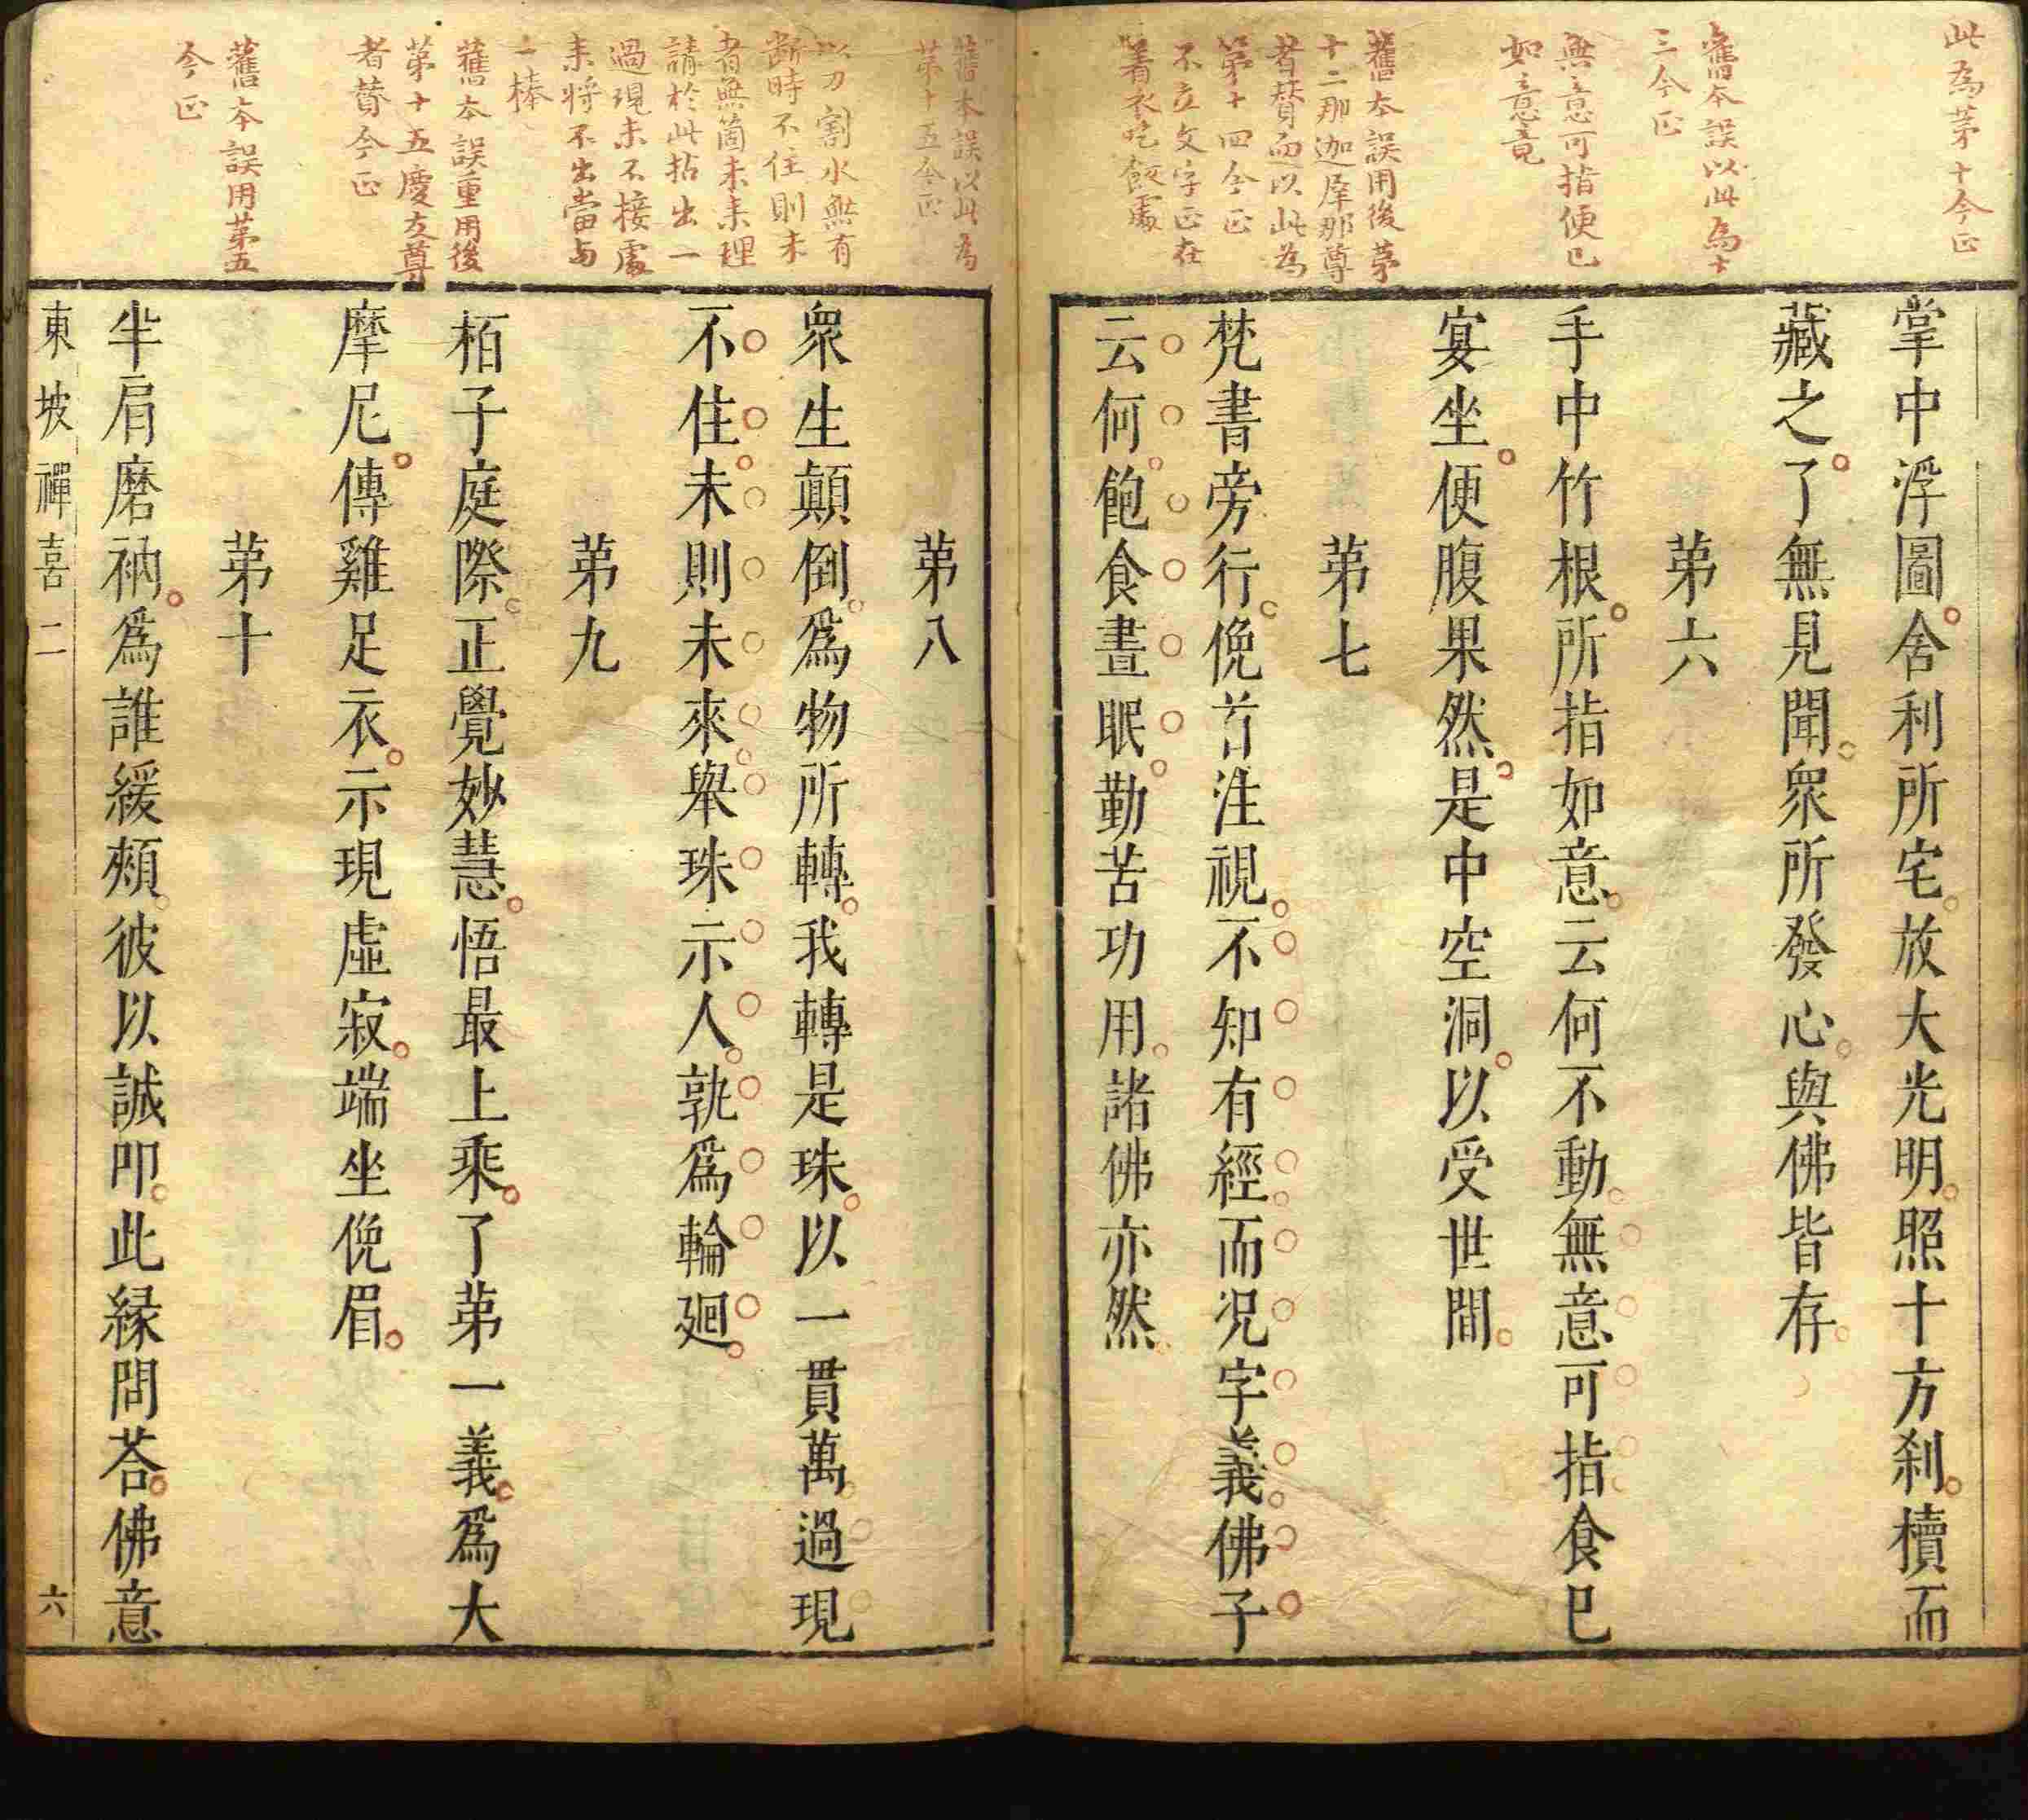 此為第十今正
舊本誤以此為十
三今正
無意可指便已
如意竟
舊本誤用後第
十二那迦犀那尊
者贊而以此為
第十四今正
不立文字正在
著衣吃飯處
掌中浮圖舍利所宅放大光明照十方刹櫝而
藏之了無見聞衆所發心與佛皆存
第六
手中竹根所指如意云何不動無意可指食已
宴坐便腹果然是中空洞以受世間
第七
梵書旁行俛首注視不知有經而况字義佛子
云何飽食晝眠勤苦功用諸佛亦然
舊本誤以此為
第十五今正
以刀割水無有
斷時不住則未
者無箇未来理
請於此拈出一
過現未不接處
来將不出當与
一棒
舊本誤重用後
第十五慶友尊
者贊今正
舊本誤用第五
今正
第八
衆生顛倒爲物所轉我轉是珠以一貫萬過現
不住未則未來舉珠示人孰爲輪廻
第九
栢子庭際正覺妙慧悟最上乘了第一義爲大
摩尼傳雞足衣示現虛寂端坐俛眉
第十
半肩磨衲爲誰緩頰彼以誠叩此緣問荅佛意
東坡禪喜 二 六